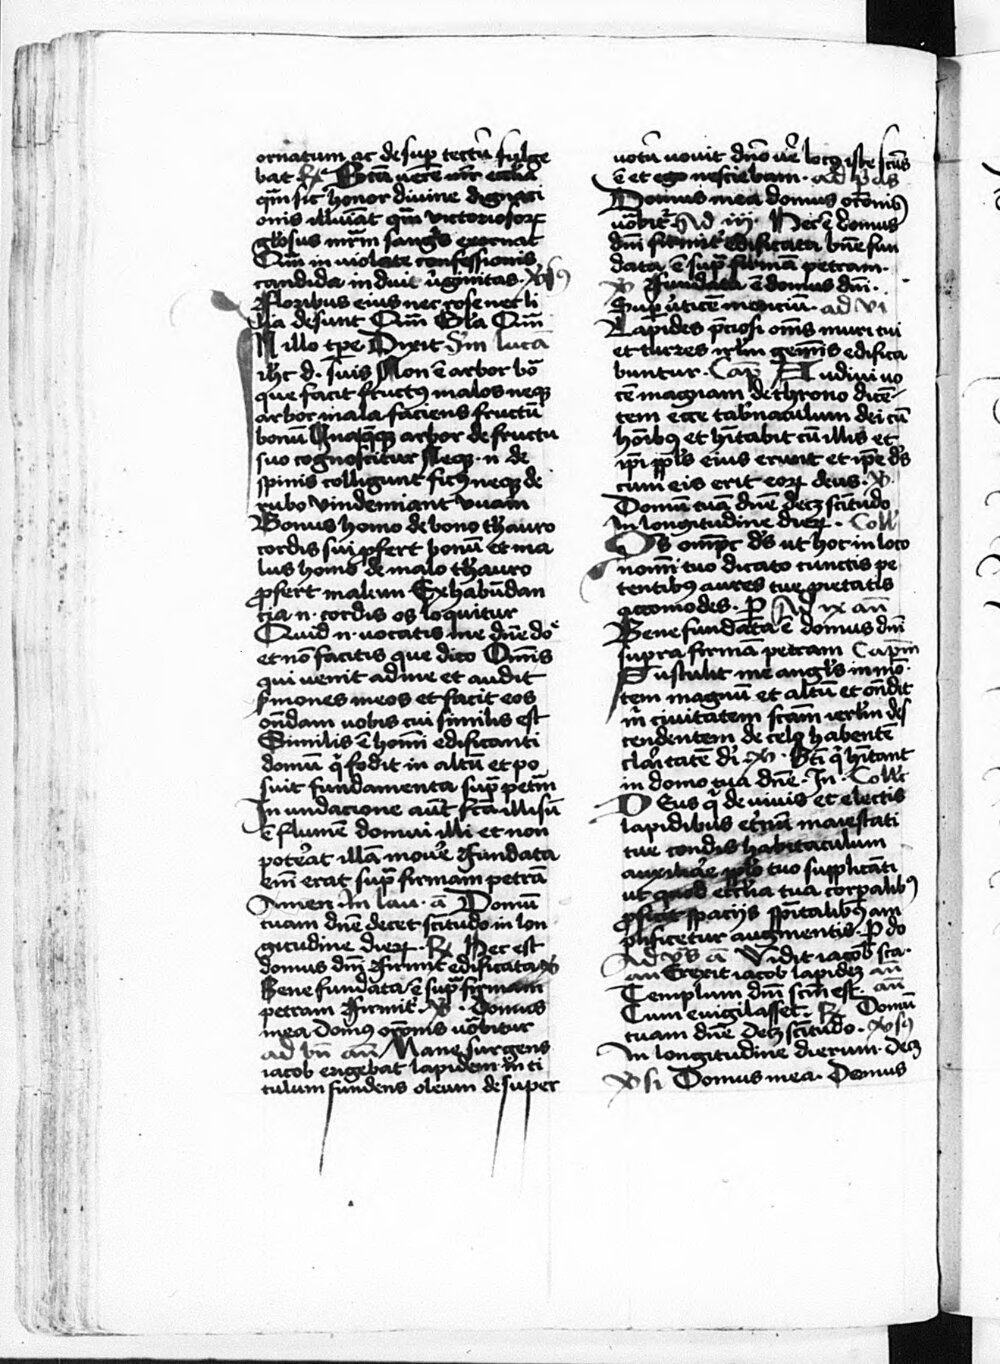 ornatum ac desup̄ tectū fulge
bat ℞ Btā vere mr̄ eccl̄ia
qm̄ sic honor divine dignaci
onis illuīat qm̄ victoriosoꝝ
gl̓osus mr̄m sang̓s exornat
Cuiꝰ in violate confessionis
candida induit v̓ginitas ꝟsꝰ
Floribus eius nec rose nec li
lia desunt Cuiꝰ Gl̓a Cuiꝰ
In illo tp̄e Dixit Sm̄ lucā
ih̄c d. suis Non ē arbor bōa
que facit fructꝰ malos neqꝫ
arbor mala faciens fructū
bonū Vnaq̄qꝫ arbor de fructu
suo cognoscitur Neqꝫ n de
spinis colligunt ficꝰ neqꝫ de
rubo vindemiant vuam
Bonus homo de bono thauro
cordis sui ꝓfert bonū et ma
lus homo de malo thauro
ꝓfert malum Ex habūdan
cia n. cordis os loquitur
Quid n. vocatis me dn̄e dn̄e
et nō facitis que dico Om̄is
qui venit ad me et audit
s̓mones meos et facit eos
on̄dam vobis cui similis est
Similis ē homī edificanti
domū q̇ fodit in altū et po
suit fundamenta supͣ petͣm
Inundacione aūt fcā illisū
ē flumē domui illi et non
pot̓at illā mou̓e Fundata
em̄ erat supͣ firmam petrā
Amen In lau. a Domū
tuam dn̄e decet sc̄itudo in lon
gitudine dieꝝ ℞ Hec est
domus dm̄ Firmit̓ edificata ꝟ
Bene fundata ē supͣ firmam
petram Firmit̓. ꝟ. Domus
mea Domꝰ or̄onis vo̓bitur
ad bn̄ an̄ Mane surgens
iacob erigebat lapidem in ti
tulum fundens oleum desuper
votū vovit dn̄o ve̓ locꝰ iste sc̄us
ē et ego nesciebam. ad p̓as
Domus mea domus or̄onis
vo̓bit̓ Ad iij. Hec ē domus
dm̄ firmit̓ edificata bn̄e fun
data ē supͣ firmā petram.
ꝟ Fundata ē domus dm̄.
Sup̄ v̓ticē monciū. ad vi
Lapides p̄ciosi om̄s muri tui
et turres irl̄m gem̄is edifica
buntur. Capᷝ Audivi vo
cē magnam de throno dicē
tem ecce tab̓naculum dei cū
ho̅ībꝰ et hītabit cū illis et
ip̄i ppl̓s eius erunt et ip̄e ds̓
cum eis erit eoꝝ deus. ꝟ.
Domū tuā dn̄e decꝫ sc̄itudo
In longitudine dieꝝ. Coll̓
Ds̓ omp̄c ds̓ ut hoc in loco
nomī tuo dicato cunctis pe
tentibꝰ aures tue pietatis
accomodes. P Ad ix an̄
Bene fundata ē domus dm̄
supra firmā petram Capm̄
Sustulit me angl̓s in mō
tem magnū et altū et on̄dit
m̄ civitatem sc̄am ierl̄m des
cendentem de celo habentē
clar̓tatē di̓ ꝟ. Bti̅ q̇ hītant
in domo tua dn̄e. In. Coll̓c
Deus q̇ de vivis et electis
lapidibus et̓nū maiestati
tue condis habitaculum
auxiliae ppl̓o tuo supplicāti
ut quod eccl̓ia tua corꝑalibꝰ
ꝓficit spaciis sp̄italibꝰ am
plificetur augmentis. P do
Ad vs̓ a Vidit iacob sca.
an Erexit iacob lapidē an̄
Templum dm̄ sc̄m est. an̄
Cum evigilasset. ℞ Domū
tuam dn̄e. Decꝫ sc̄itudo. ꝟsꝰ
In longitudine dierum. Decꝫ
ꝟsi Domus mea. Domus